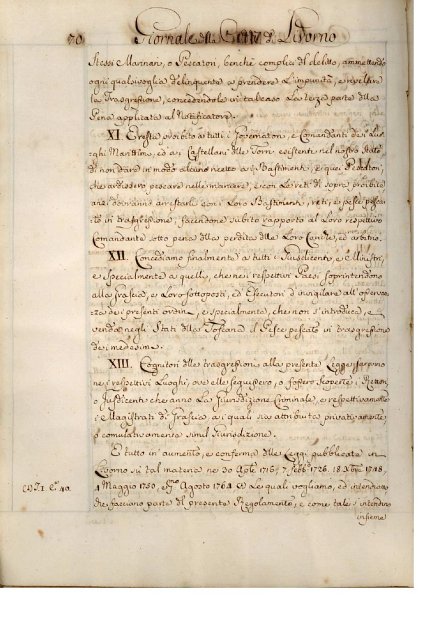 70 Giornale della Città di Livorno
Stessi Marinari, o Pescatori, benchè complici del delitto, ammettendo
ogni qualsivoglia delinquente a prendere l'impunità, e rivelare
la Trasgressione, concedendole in tal caso la terza parte della
Pena applicata al Notificatore.
XI. Eresta proibito a tutti i Governatori, e Comandanti de Luo-
ghi Marittimi, ed ai Castellani delle Torri esistenti nel nostro Stato
di non dare in modo alcuno ricetto a Bastimenti, e a quei Pescatori,
che ardissero pescare nelle maniere, e con le reti di sopra proibite
anzi dovranno arrestarli con i Loro Bastimenti, reti, e pesci pesca-
to in trasgressione, facendone subito rapporto al Loro respettivo
Comandante sotto pena della perdita delle Loro Cariche, ed arbitrio.
XII. Concediamo finalmente a tutti i Giusdicenti, e Ministri,
e specialmente a quelli, che nei respettivi Paesi soprintendono
alla Grascia, e Loro sottoposti, ed Esecutori d'invigilare all'osservan-
za dei presenti ordini, e specialmente, che non s'introduca, e
venda negli Stati della Toscana il Pesce pescato in trasgressione
dei medesimi.
XIII. Cognitori delle trasgressioni alla presente Legge saranno
nei respettivi Luoghi, ove elle seguissero, o fossero scoperte, i Rettori,
o Jusdicenti che anno la Giurisdizione Criminale, e respettivamente
i Magistrati di Grascia ai quali sia attribuita privativamente,
o comulativamente simil Giurisdizione.
E tutto in aumento, e conferma delle Leggi pubblicate in
Livorno su tal materia ne 30 Aple 1716, 7. febb. 1726. 18 Xbre 1748,
4 Maggio 1750, e Agosto 1764 le quali vogliamo, ed intendiamo
che facciano parte del presente Regolamento, e come tale s'intendino
insieme